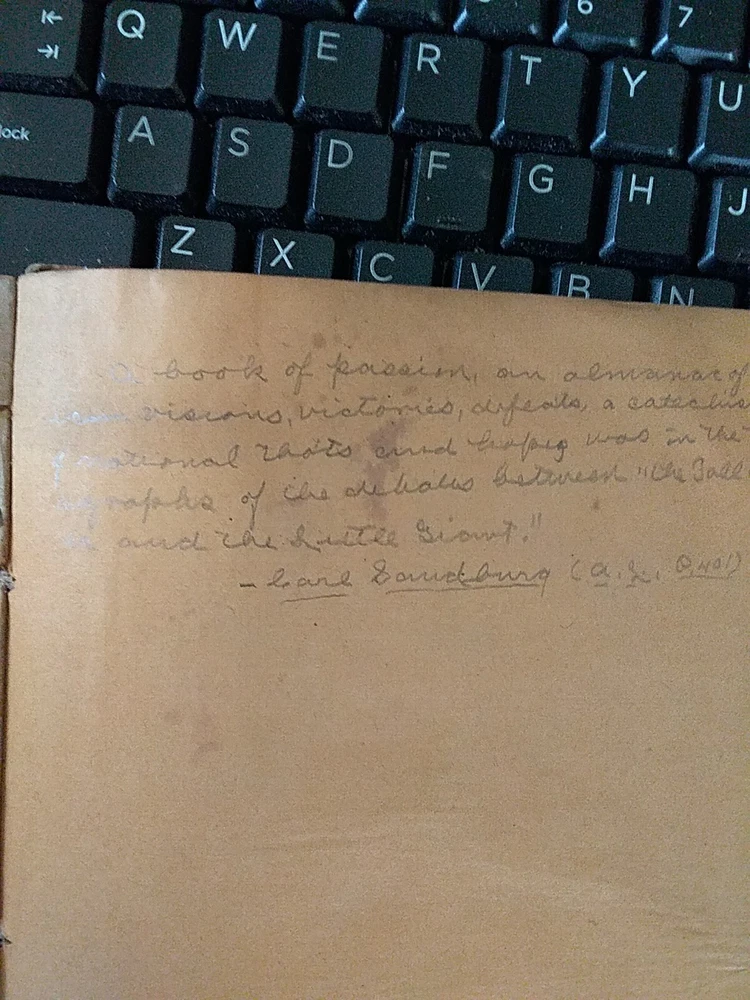 6 7
Q W E R T Y U
lock A S D F G H J
Z X C V B N
a book of passion, an almanac of
visions, victories, defeats, a catechis
thots and hopes was in the
graphs of the debates between "the Tall
and the Little Giant."
- Carl Sandburg (A. L. P. 401)